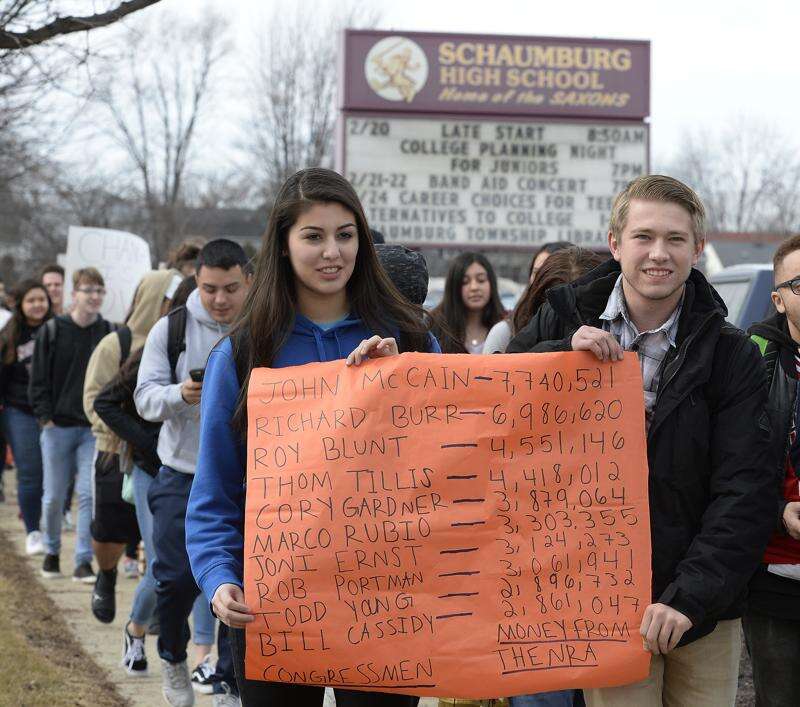 SCHAUMBURG
HIGH SCHOOL
Home of the SAXONS
2/20 LATE START 8:50AM
COLLEGE PLANNING NIGHT
FOR JUNIORS 7PM
2/21-22 BAND AID CONCERT 7
/24 CAREER CHOICES FOR TEE
TERNATIVES TO COLLEGE
AUMBURG TOWNSHIP LIBRA
CHAN
JOHN McCAIN — 7,740,521
RICHARD BURR — 6,986,620
ROY BLUNT — 4,551,146
THOM TILLIS — 4,418,012
CORY GARDNER — 3,879,064
MARCO RUBIO — 3,303,355
JONI ERNST — 3,124,273
ROB PORTMAN — 3,061,941
TODD YOUNG — 2,896,732
BILL CASSIDY — 2,861,047
CONGRESSMEN
MONEY FROM
THE NRA